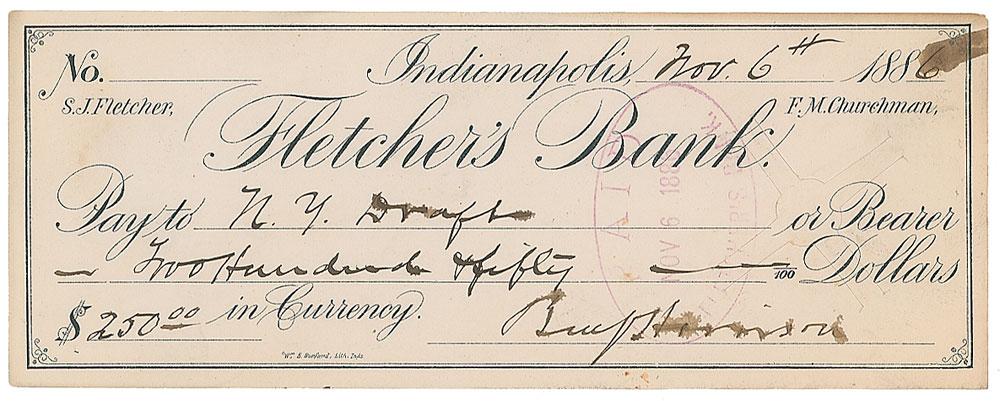 No. Indianapolis, Nov. 6th 1886
S.J. Fletcher, F.M. Churchman,
Fletcher's Bank.
Pay to N. Y. Draft or Bearer
Two Hundred & fifty /100 Dollars
$ 250 00 in Currency.
Benj Harrison
PAID
NOV 6 188
FLETCHER'S BANK.